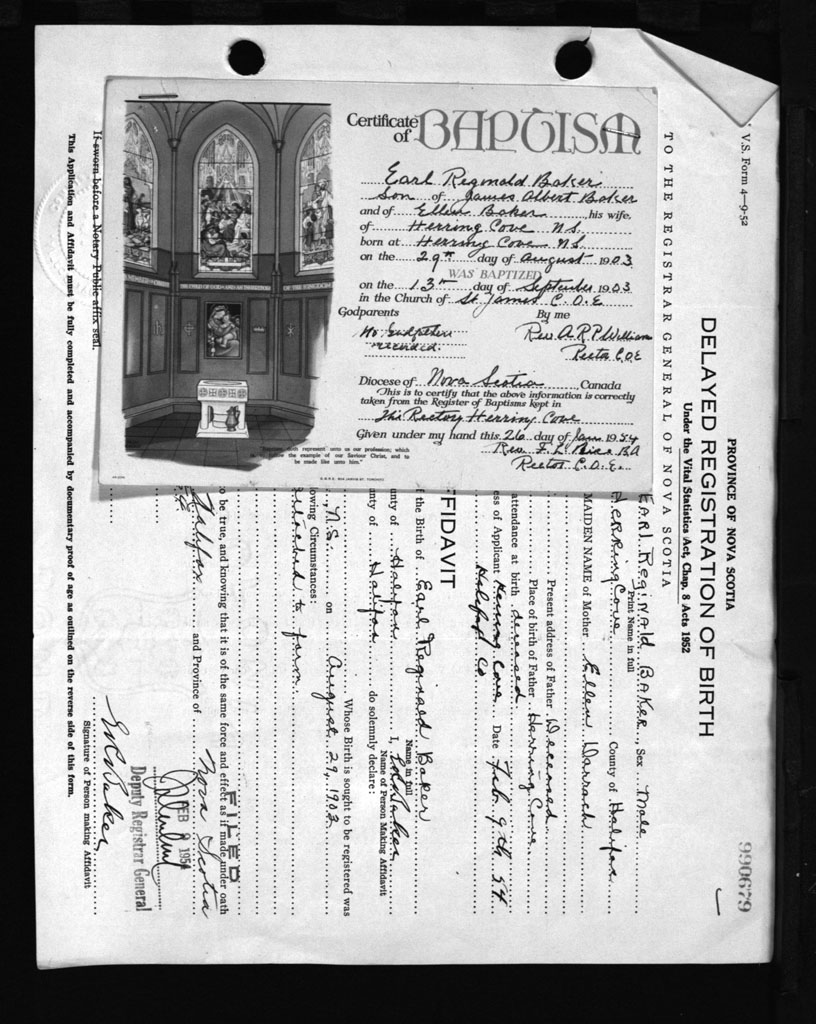 Certificate of BAPTISM
Earl Reginald Baker
Son of James Albert Baker
and of Ellen Baker, his wife,
of Herring Cove N.S.
born at Herring Cove N.S.
on the 29th day of August 1903
WAS BAPTIZED
on the 13th day of September 1903
in the Church of St James C.O.E
Godparents By me
No Godparents Rev A.R.P. William
recorded. Rector C.O.E
Diocese of Nova Scotia, Canada
This is to certify that the above information is correctly
taken from the Register of Baptisms kept in
The Rectory Herring Cove
Given under my hand this 26 day of Jan 1954
Rev. F. L. B.A
Rector C.O.E.
doth represent unto us our profession; which
the example of our Saviour Christ, and to
be made like unto him."
V.S. Form 4—9-52
990679
PROVINCE OF NOVA SCOTIA
DELAYED REGISTRATION OF BIRTH
Under the Vital Statistics Act, Chap. 8 Acts 1952
TO THE REGISTRAR GENERAL OF NOVA SCOTIA
EARL REGINALD BAKER, Sex Male
Print Name in full
Herring Cove County of Halifax
MAIDEN NAME of Mother Ellen Darrach
Present address of Father Deceased
Place of birth of Father Herring Cove
attendance at birth deceased
ess of Applicant Herring Cove Date Feb 9th 54
Halifax Co
FFIDAVIT
t the Birth of Earl Reginald Baker
Name in full
unty of Halifax I, Baker
Name of Person Making Affidavit
nty of Halifax do solemnly declare:
Whose Birth is sought to be registered was
N.S. on August 29, 1903
lowing Circumstances:
attached to form
o be true, and knowing that it is of the same force and effect as if made under oath
FILED
Halifax and Province of Nova Scotia
FEB 9 1954
Deputy Registrar General
Baker
Signature of Person making Affidavit
If sworn before a Notary Public affix seal.
This Application and Affidavit must be fully completed and accompanied by documentary proof of age as outlined on the reverse side of this form.